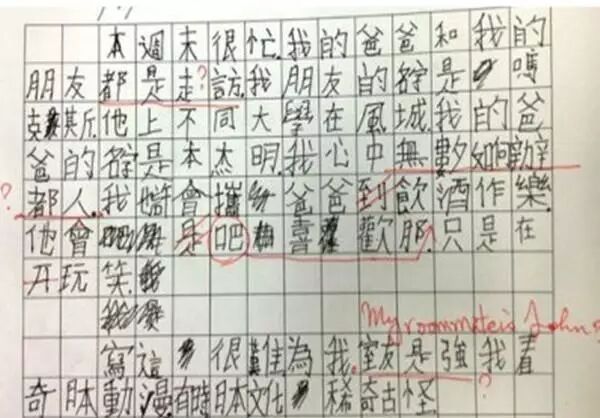 本週末很忙.我的爸爸和我的
朋友都是走?訪.我朋友的名字是 嗎
克莫斯.他上不同大學在風城.我的爸
爸的名字是本杰明.我心中無數如何辦辛
?都人.我 會攜 爸爸到飲酒作樂.
他會 是吧 喜 歡那.只是在
开玩笑.
My roommate is John?
寫這 很難為我.室友是強我看
奇 日本動漫有時日本文化 稀奇古怪. ?